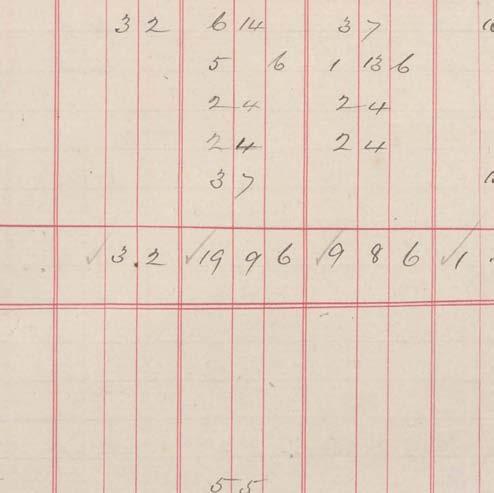 3 2 6 14 3 7
5 6 1 13 6
2 4 2 4
2 4 2 4
3 7
3 2 19 9 6 9 8 6 1
5 5